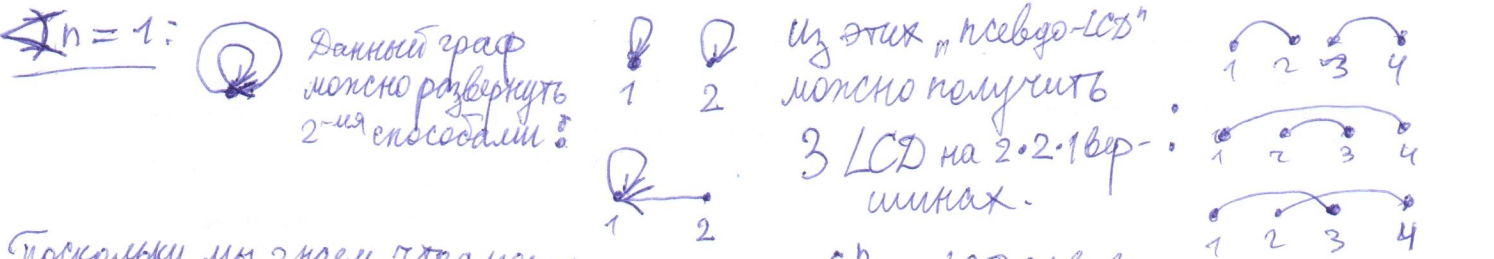 ∢ n = 1:
Данный граф
можно развернуть
2-мя способами:
1 2
1 2
Из этих „псевдо-LCD"
можно получить
3 LCD на 2·2·1 вер- :
шинах.
1 2 3 4
1 2 3 4
1 2 3 4
Поскольку мы знаем, что